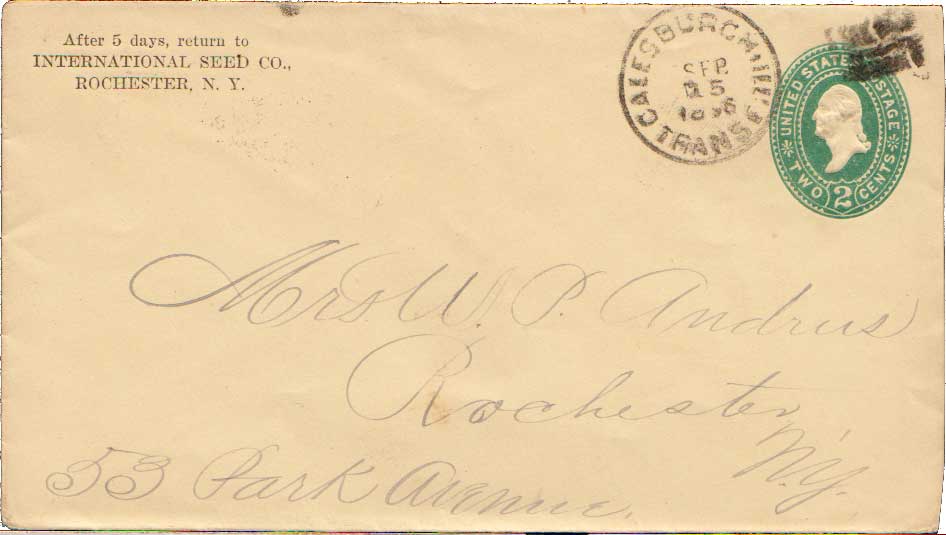 After 5 days, return to
INTERNATIONAL SEED CO.,
ROCHESTER, N. Y.
GALESBURG
SEP
TRANSF
UNITED STATES POSTAGE
TWO 2 CENTS
Mrs W. P. Andrus
Rochester
N.Y.
53 Park Avenue.